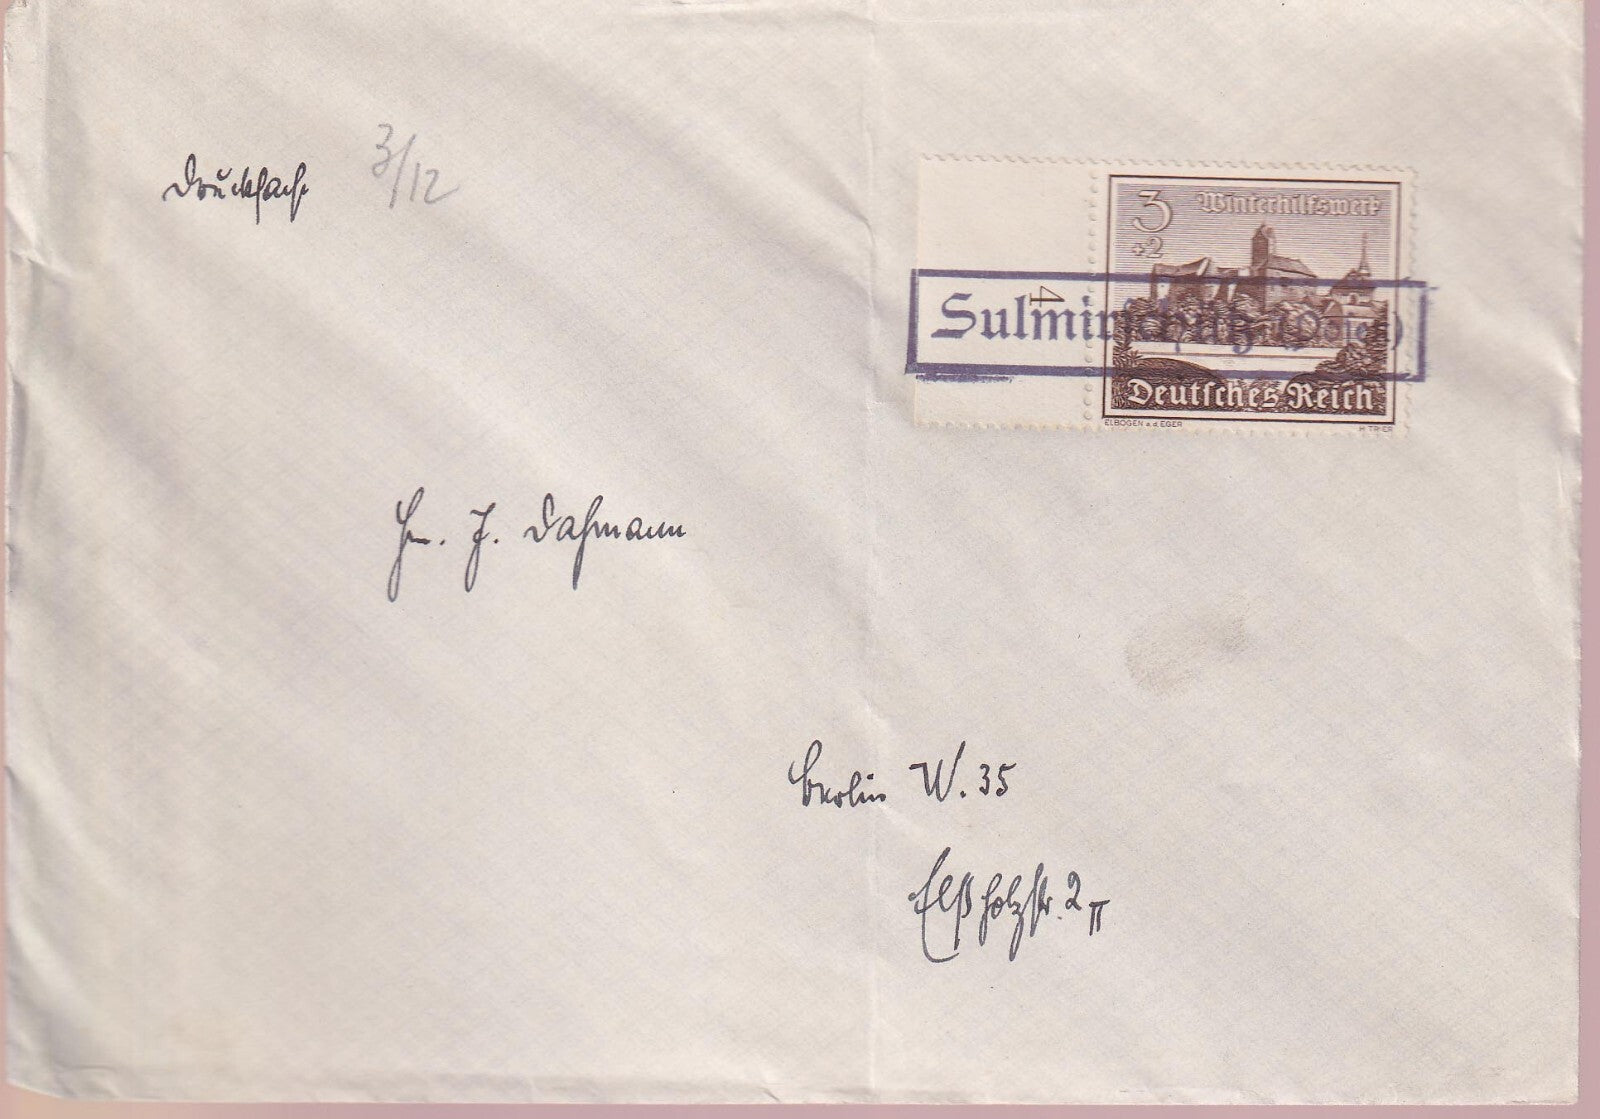 Drucksache
3/12
3
+2
Winterhilfswerk
4
Sulmierschütz (Posen)
Deutsches Reich
ELBOGEN a.d. EGER
H. TRIER
Hrn. J. Dahmann
Berlin W. 35
Elßholzstr. 2 II